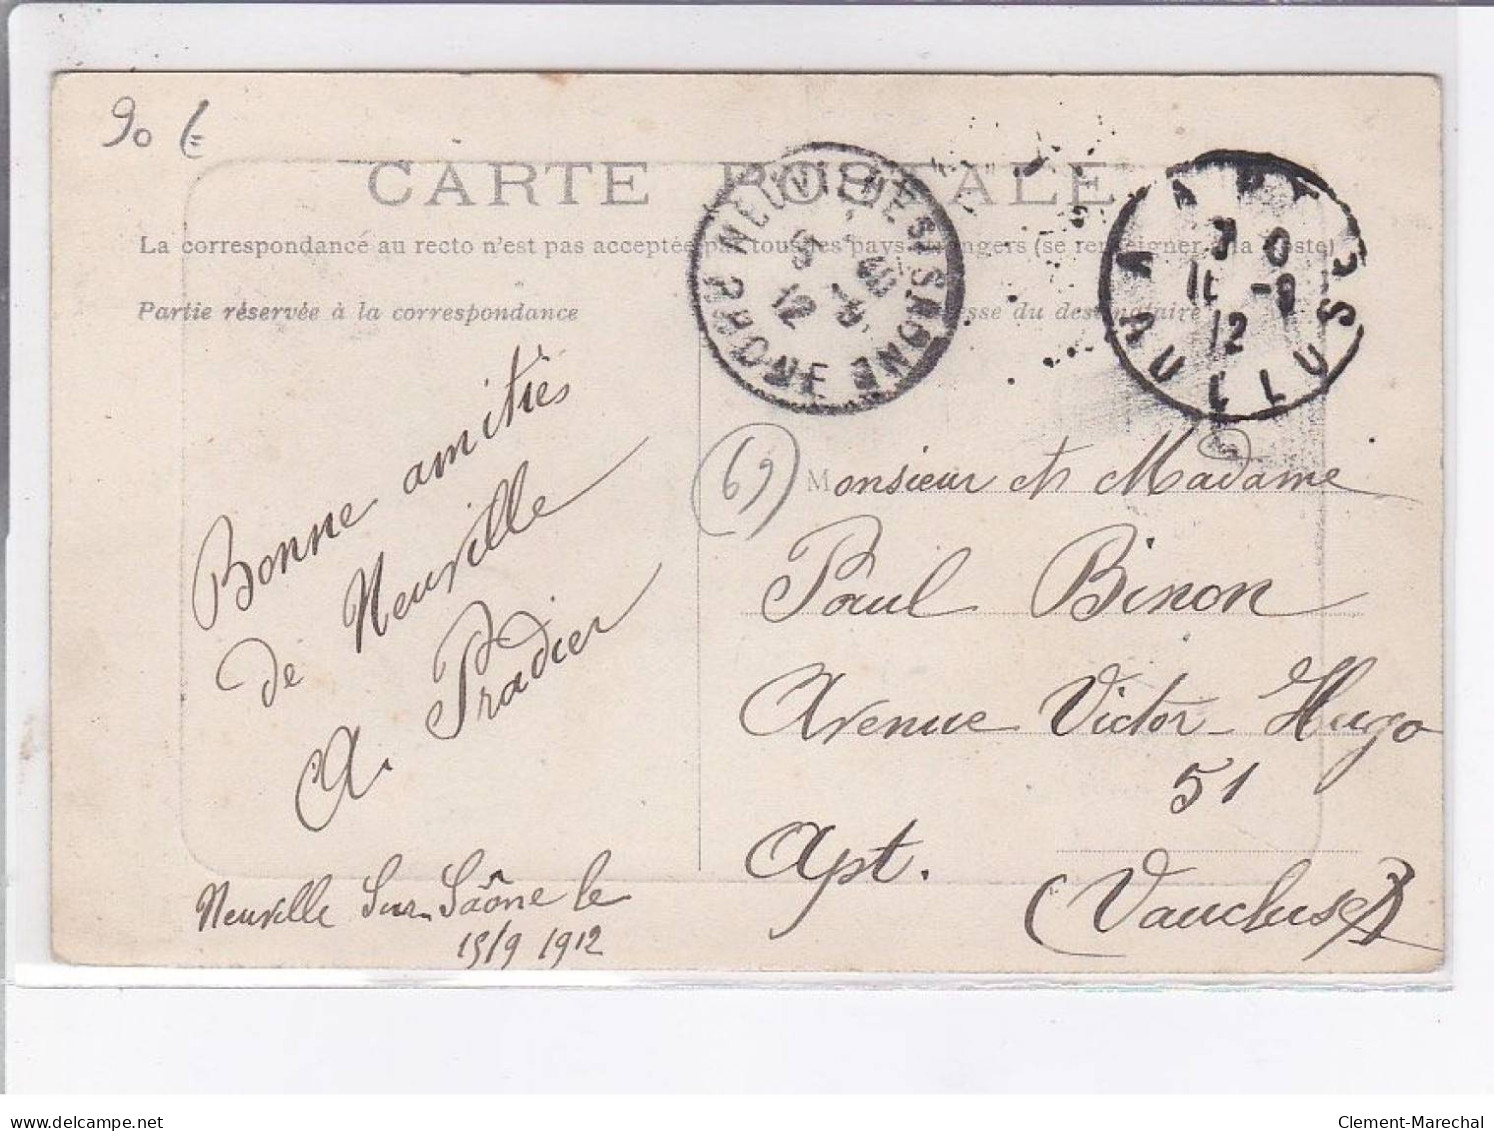 90 €
CARTE POSTALE
La correspondance au recto n'est pas acceptée par tous les pays étrangers (se renseigner à la Poste)
Partie réservée à la correspondance
Adresse du destinataire
NEUVILLE S SAONE
RHONE
12
APT
VAUCLUSE
7 0
12
Bonne amitiés
de Neuville
A. Pradier
Neuville Sur Saône le
15/9 1912
69
Monsieur et Madame
Paul Binon
Avenue Victor-Hugo
51
Apt.
(Vaucluse)
delcampe.net
Clement-Marechal